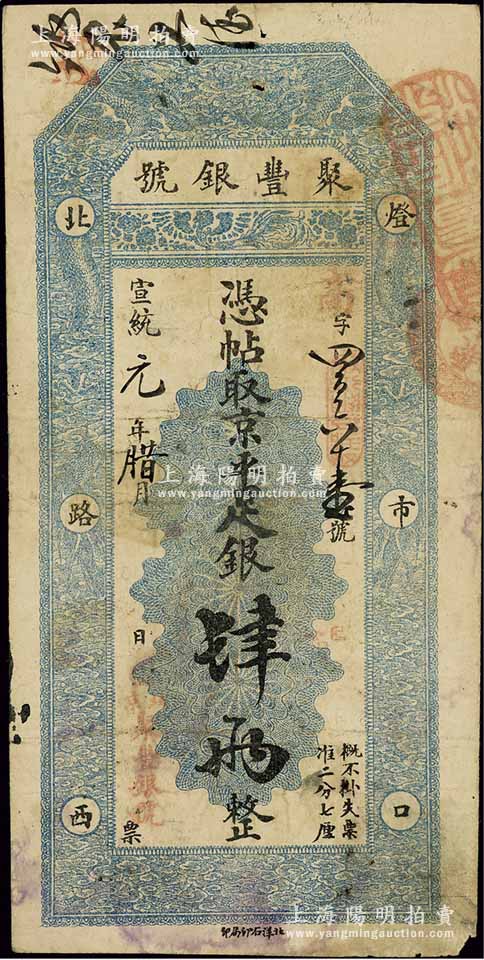 上海陽明拍賣
www.yangmingauction.com
聚豐銀號
燈市口
北路西
字四百六十壹號
憑帖取京平足銀肆兩整
宣統元年腊月 日票
概不掛失票
准二分七厘
上海陽明拍賣
www.yangmingauction.com
上海陽明拍賣
www.yangmingauction.com
北洋石印局印